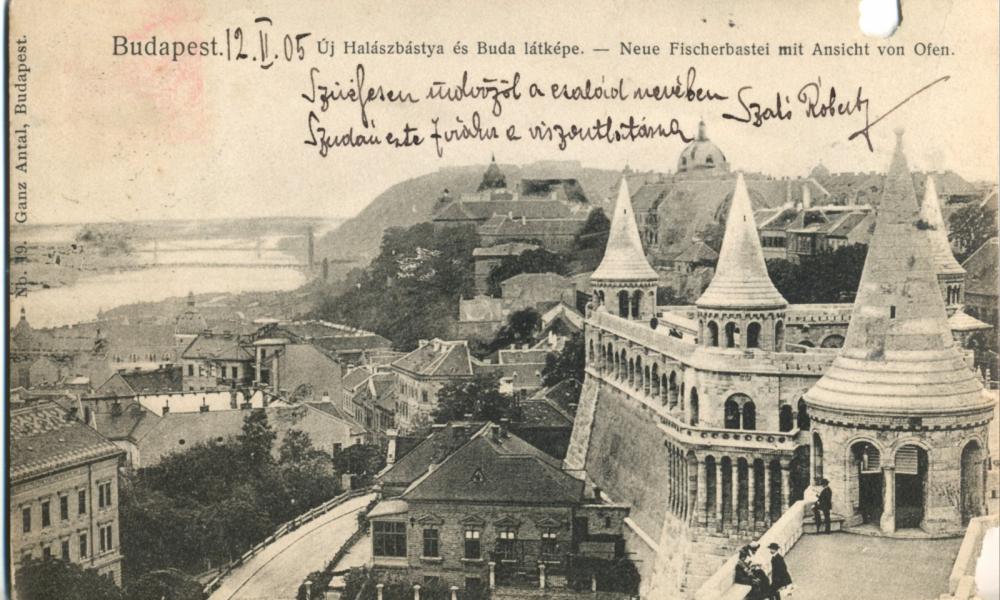 Budapest. 12. II. 05 Új Halászbástya és Buda látképe. — Neue Fischerbastei mit Ansicht von Ofen.
Szivesen üdvözöl a család nevében Szabó Róbert
este a viszontlátásra
No. 19. Ganz Antal, Budapest.